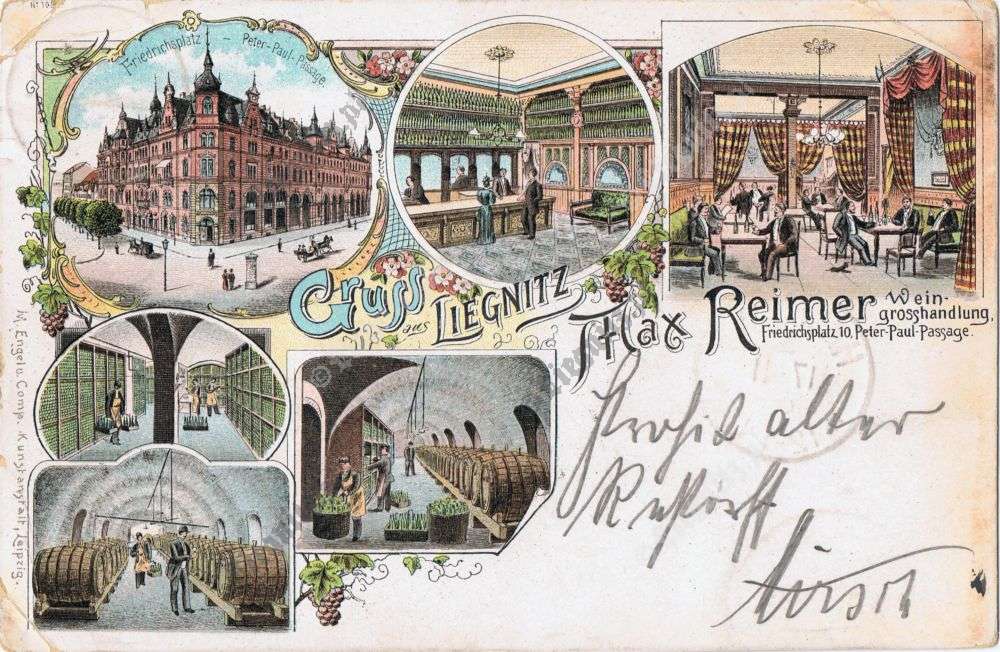 Friedrichsplatz — Peter-Paul-Passage.
Gruss aus LIEGNITZ
Max Reimer Wein-
grosshandlung,
Friedrichsplatz 10, Peter-Paul-Passage.
Prosit alter
J. Engel u. Comp. Kunstanstalt, Leipzig.